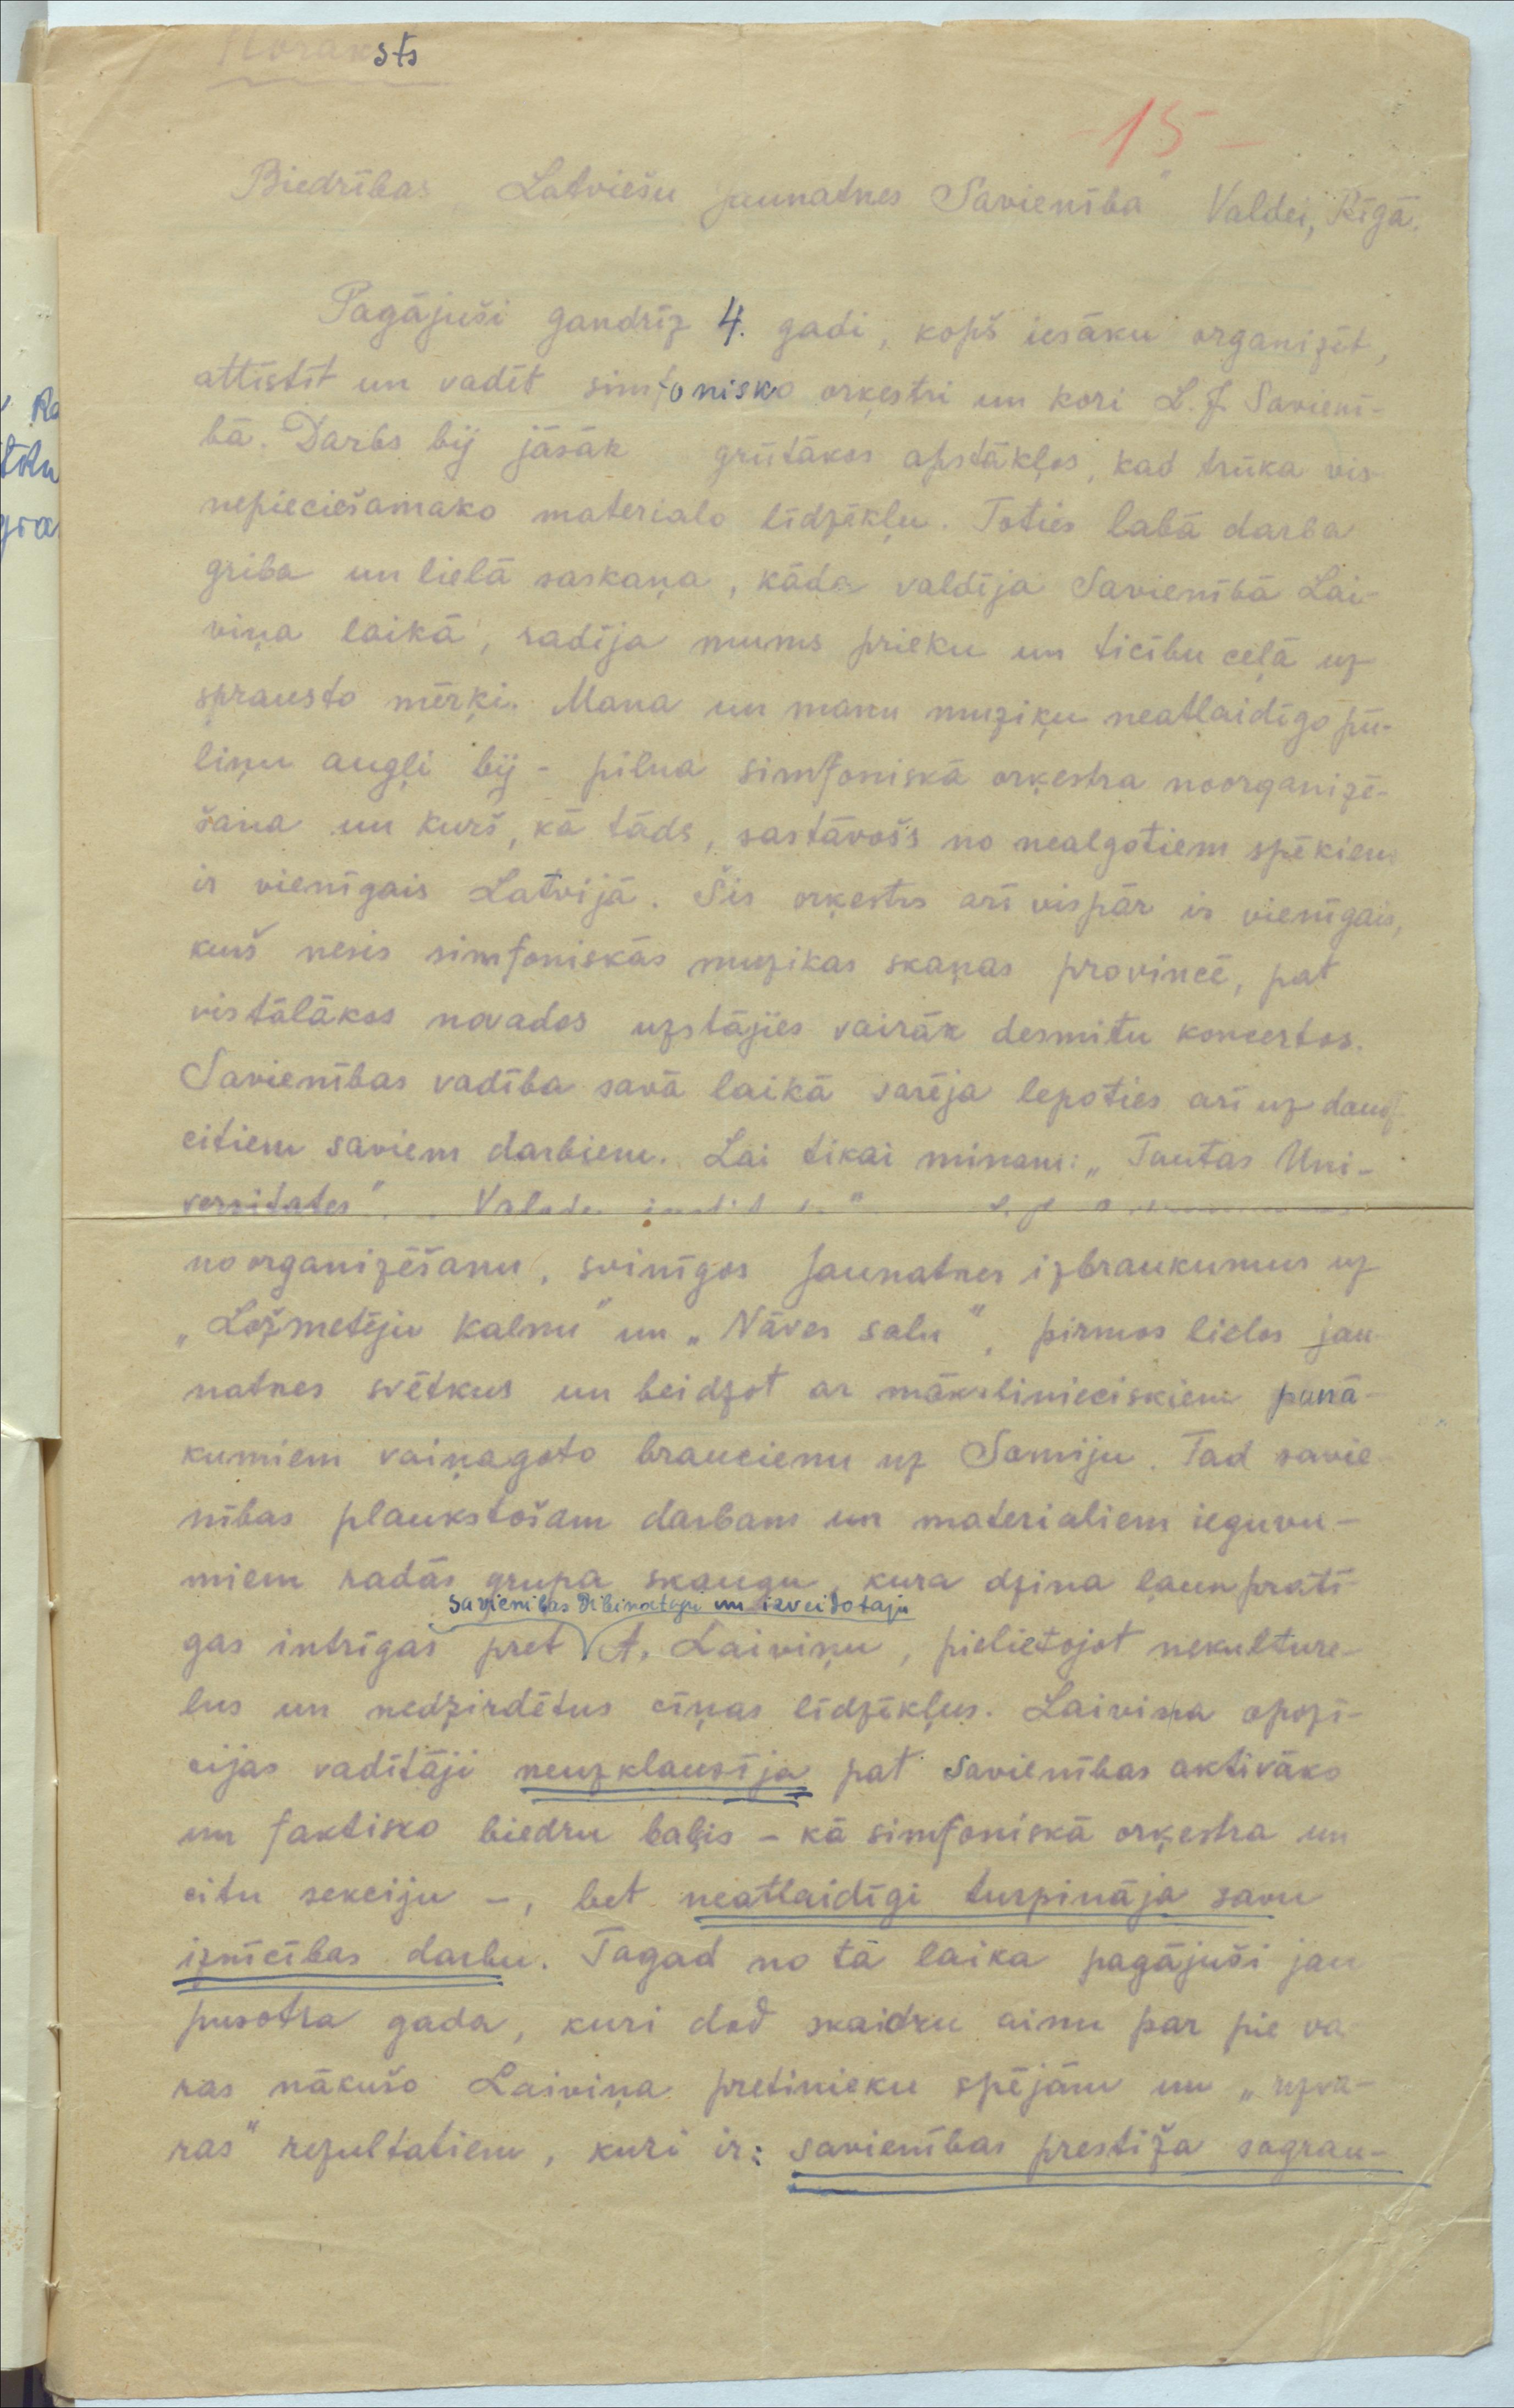 Noraksts
- 15 -
Biedrības „Latviešu Jaunatnes Savienība" Valdei, Rīgā.
Pagājuši gandrīz 4. gadi, kopš iesāku organizēt,
attīstīt un vadīt simfonisko orķestri un kori L. J. Savienī-
bā. Darbs bij jāsāk grūtākos apstākļos, kad trūka vis
nepieciešamako materialo līdzēkļu. Toties labā darba
griba un lielā saskaņa, kāda valdīja Savienībā Lai-
viņa laikā, radīja mums prieku un ticību ceļā uz
sprausto mērķi. Mana un manu muziķu neatlaidīgo pū-
liņu augļi bij - pilna simfoniskā orķestra noorganizē-
šana un kurš, kā tāds, sastāvošs no nealgotiem spēkiem
ir vienīgais Latvijā. Šis orķestrs arī vispār ir vienīgais,
kurš nesis simfoniskās muzikas skaņas provincē, pat
vistālākos novados uzstājies vairāk desmitu koncertos.
Savienības vadība savā laikā varēja lepoties arī uz daudz
citiem saviem darbiem. Lai tikai minam: „Tautas Uni-
versitates", „Valodu
noorganizēšanu, svinīgos Jaunatnes izbraukumus uz
„Ložmetēju kalnu" un „Nāves salu", pirmos lielos jau
natnes svētkus un beidzot ar māksliniecis­kiem panā-
kumiem vaiņagoto braucienu uz Somiju. Tad savie
nības plaukstošam darbam un materialiem ieguvu-
miem radās grupa skauģu, kura dzina ļaunprātī
savienības dibinataju un izveidotaju
gas intrīgas pret A. Laiviņu, pielietojot nekulture-
lus un nedzirdētus cīņas līdzēkļus. Laiviņa opozī-
cijas vadītāji neuzklausīja pat savienības aktivāko
un faktisko biedru balsis - kā simfoniskā orķestra un
citu sekciju -, bet neatlaidīgi turpināja savu
iznīcības darbu. Tagad no tā laika pagājuši jau
pusotra gada, kuri dod skaidru ainu par pie va
ras nākušo Laiviņa pretinieku spējām un „uzva-
ras" rezultatiem, kuri ir: savienības prestiža sagrau-